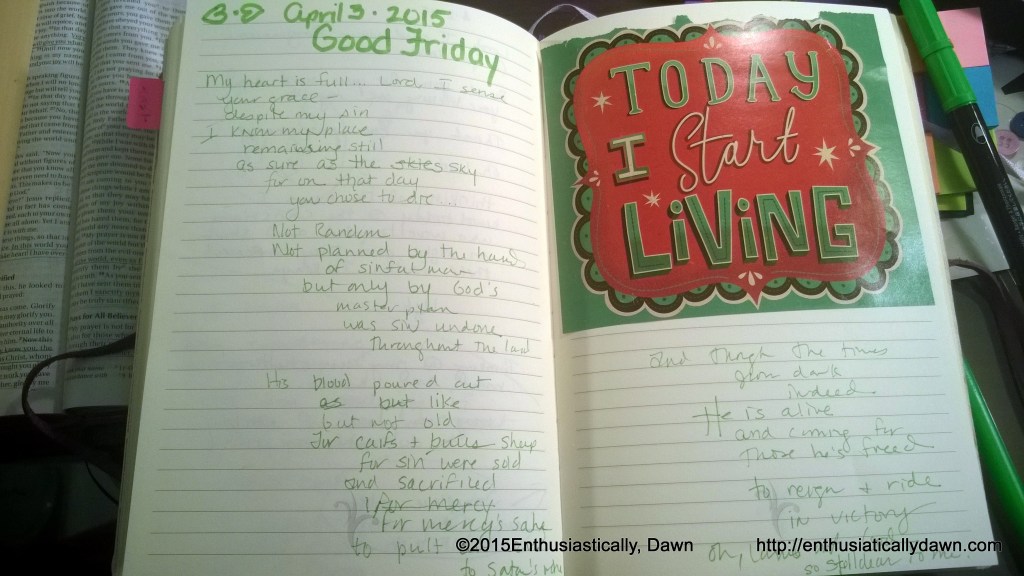 April 3 • 2015
Good Friday
My heart is full... Lord, I sense
your grace –
despite my sin
I know my place
remaining still
as sure as the skies sky
for on that day
you chose to die...
Not Random
Not planned by the hands
of sinful man
but only by God's
master plan
was sin undone
throughout the land
His blood poured out
as but like
but not old
For calfs + bulls sheep
for sin were sold
and sacrificed
for mercy
for mercy's sake
to put
to Satan's
TODAY
I Start
LiViNG
and though the times
grow dark
indeed
He is alive
and coming for
those he's freed
to reign + ride
in victory
oh,
so dear to me!
©2015Enthusiastically, Dawn
http://enthusiaticallydawn.com